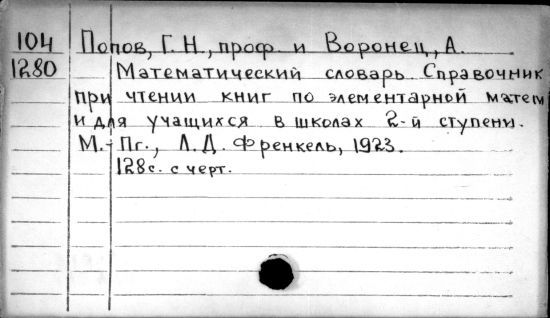 104 Попов, Г. Н., проф и Воронец, А.
1280 Математический словарь Справочник
при чтении книг по элементарной матем
и для учащихся в школах 2-й ступени.
М.-Пг., Л. Д. Френкель, 1923.
128с. с черт.